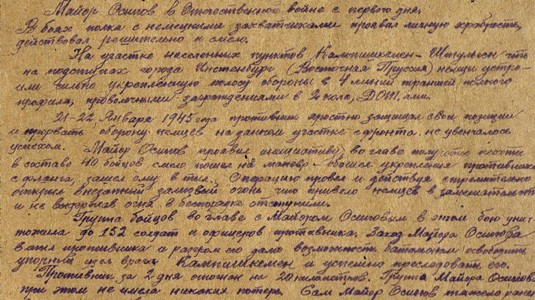 Майор Осипов в Отечественной войне с первого дня.
В боях полка с немецкими захватчиками проявил личную храбрость,
действовал решительно и смело.
На участке населенных пунктов Кампишкемен - что
на подступах города Инстенбург (Восточная Пруссия) немцы устро-
или сильно укрепленную полосу обороны в 4 линии траншей полного
профиля, проволочными заграждениями в 2 кола, ДОТ'ами.
21-22 Января 1945 года противник яростно защищал свои позиции
и прорвать оборону немцев на данном участке фронта не увенчалось
успехом. Майор Осипов проявил инициативу, во главе
в составе 40 бойцов смело пошел на маневр - обошел укрепления противника
с фланга, зашел ему в тыл. Операцию провел и действуя стремительно
открыл внезапный залповый огонь что привело немцев в замешательство
и не выдержав огня, в беспорядке отступили.
Группа бойцов во главе с Майором Осиповым в этом бою унич-
тожила до 152 солдат и офицеров противника. Заход Майора Осипова
в тыл противника и разгром его дало возможность батальонам освободить
упорный узел врага Кампишкемен и успешно преследовать его.
Противник за 2 дня отогнан на 20 километров. Группа Майора Осипова
при этом не имела никаких потерь. Сам Майор Осипов тяжело ранен